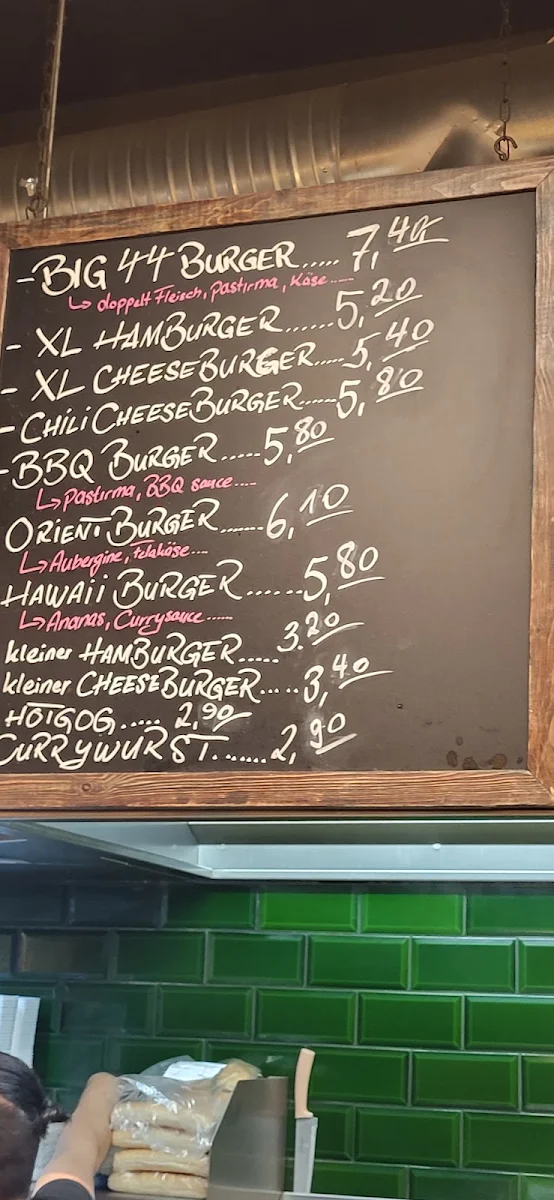 - BIG 44 BURGER..... 7,40
↳ doppelt Fleisch, Pastırma, Käse.....
- XL HAMBURGER......5,20
- XL CHEESEBURGER.....5,40
- CHiLi CHEESEBURGER......5,80
- BBQ BURGER.....5,80
↳ Pastırma, BBQ sauce.....
ORIENT BURGER.......6,10
↳ Aubergine, Fetakäse....
HAWAii BURGER......5,80
↳ Ananas, Currysauce......
kleiner HAMBURGER..... 3.20
kleiner CHEESEBURGER.....3,40
HOTGOG..... 2,90
CURRYWURST.......2,90